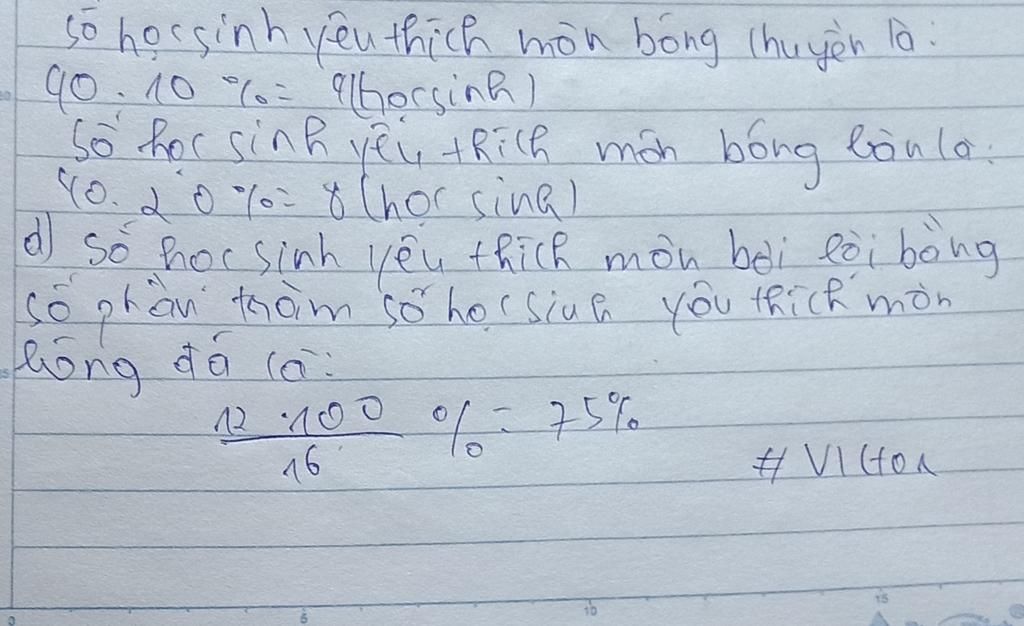 Số học sinh yêu thích môn bóng chuyền là:
40 . 10 % = 4 (học sinh)
Số học sinh yêu thích môn bóng bàn là:
40 . 20 % = 8 (học sinh)
d) Số học sinh yêu thích môn bơi lội bằng
số phần trăm số học sinh yêu thích môn
bóng đá là:
12 . 100 / 16 % = 75%
# Victor
0 5 10 15